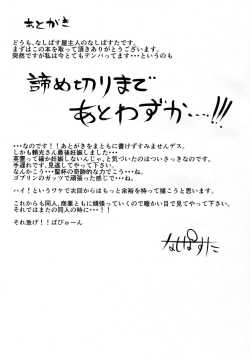 あとがき
どうも、なしぱす屋主人のなしぱすたです。
まずはこの本を取って頂きありがとうございます。
突然ですが私は今とてもテンパってます・・・というのも
諦め切りまで
あとわずか…!!!
・・・なのです！！あとがきをまともに書けずすみませんデス。
しかも頼光さん最後妊娠しました・・・
英霊って確か妊娠しないんじゃ、と気づいたのはついさっきなのです。
手遅れです、見逃してやって下さい。
なんかこう・・・聖杯の奇跡的な力でこう・・・ね。
ゴブリンのガッツで頑張った感じで・・・ね。
ハイ！というワケで次回からはもっと余裕を持って描こうと思います。
これからも同人、商業ともに頑張っていくので暖かい目で見てやって下さい。
それではまたの同人の時に・・！！
それ逃げ！！ぱぴゅーん
なしぱすた